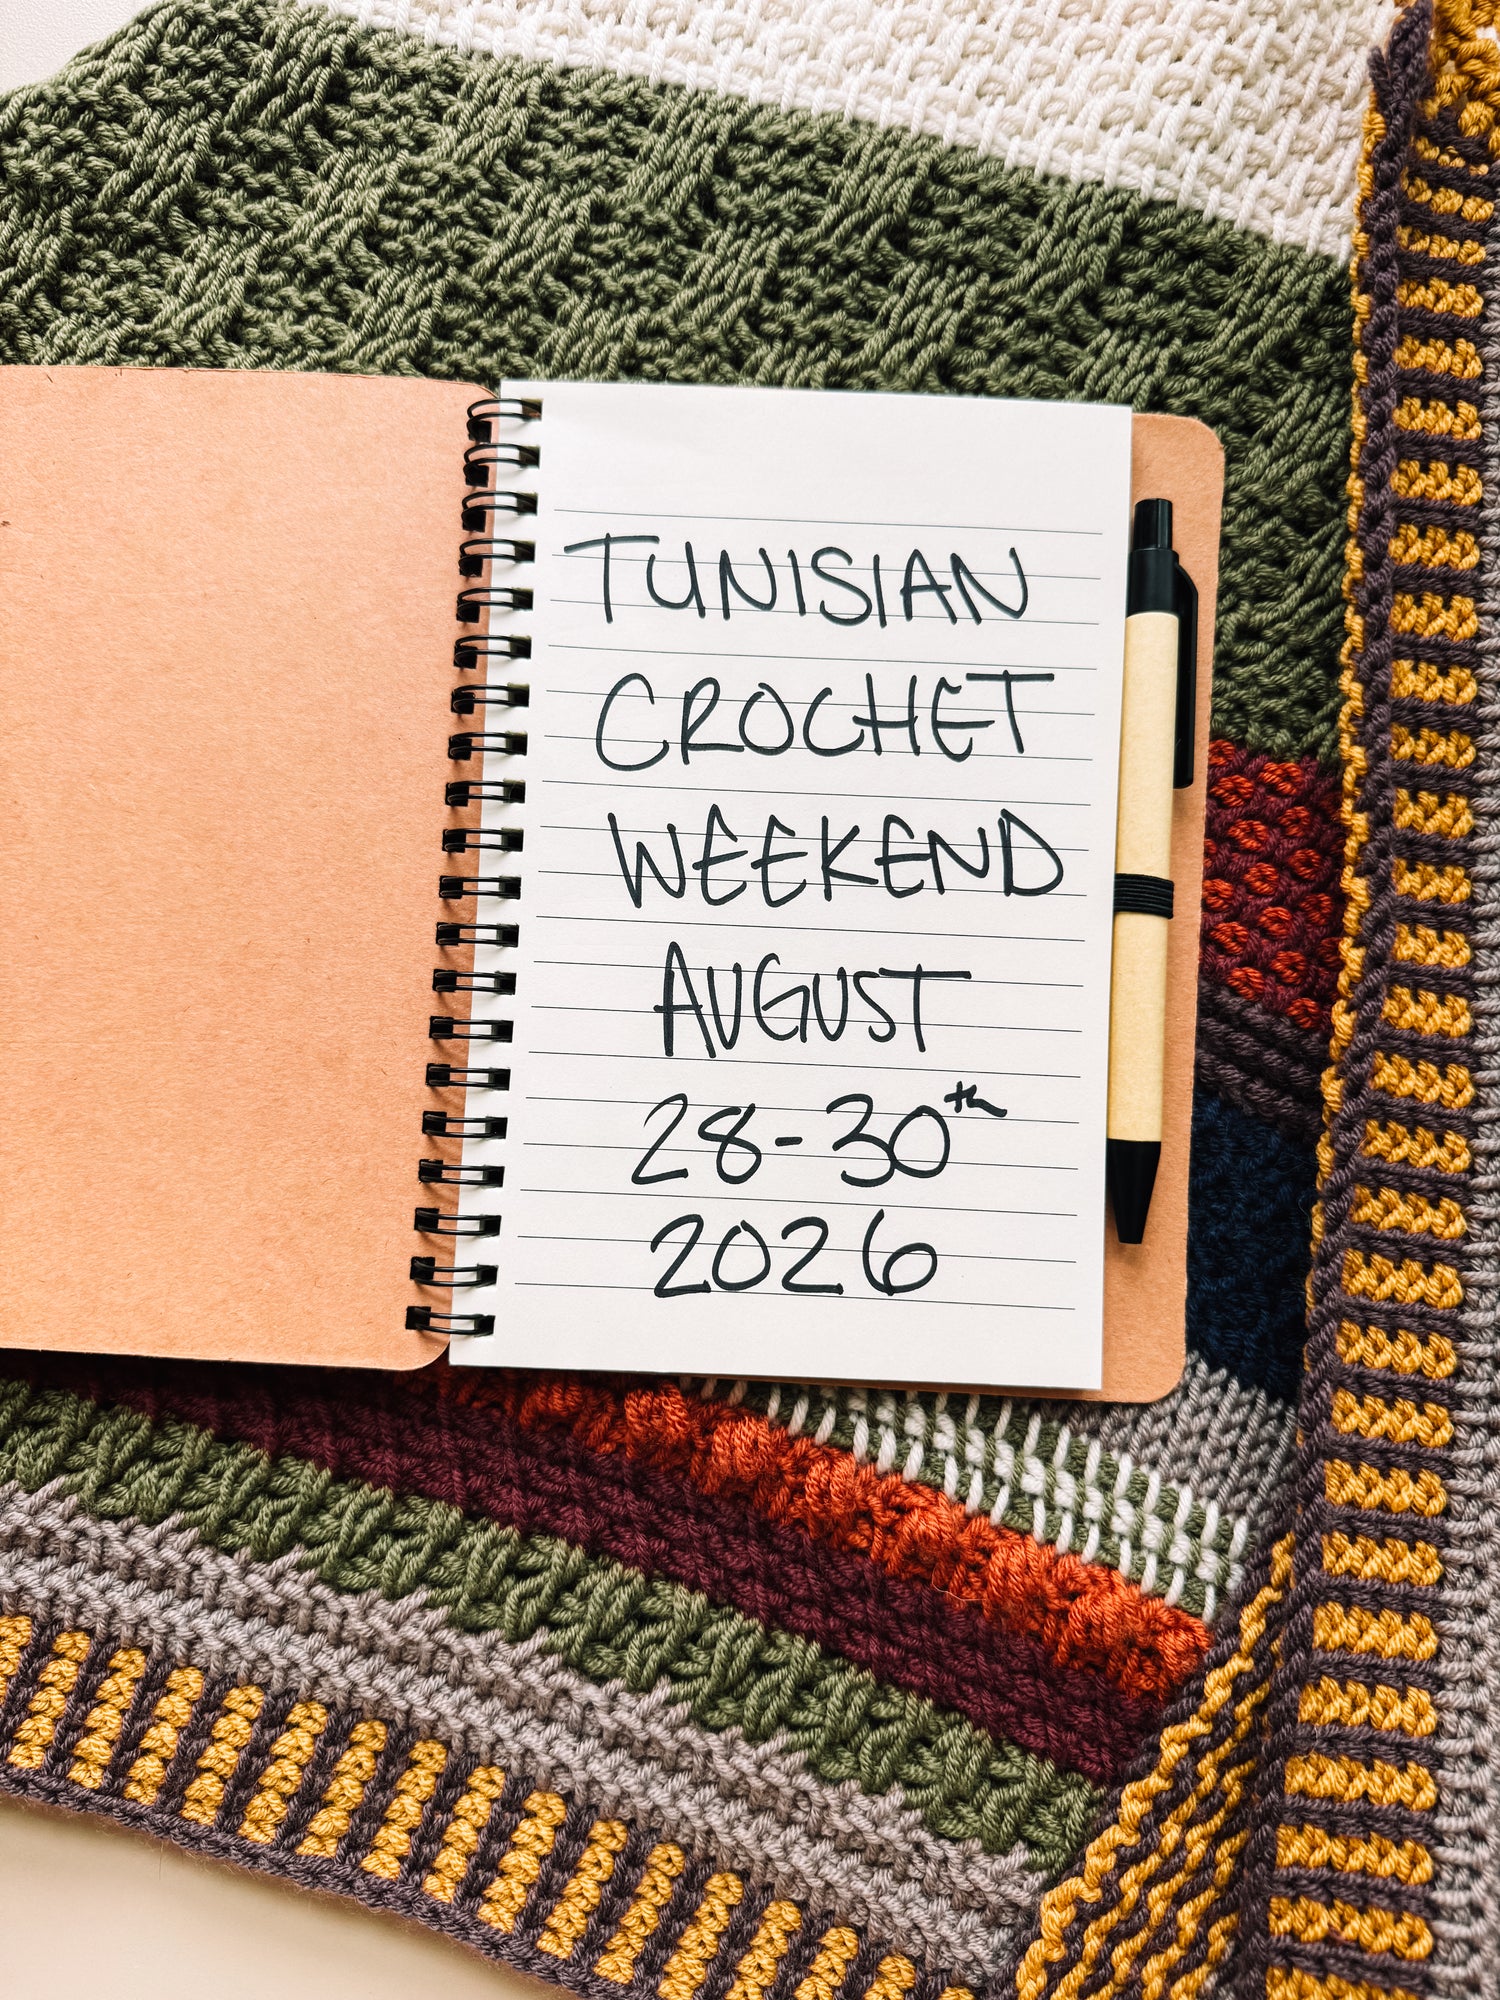 TUNISIAN
CROCHET
WEEKEND
AUGUST
28-30th
2026